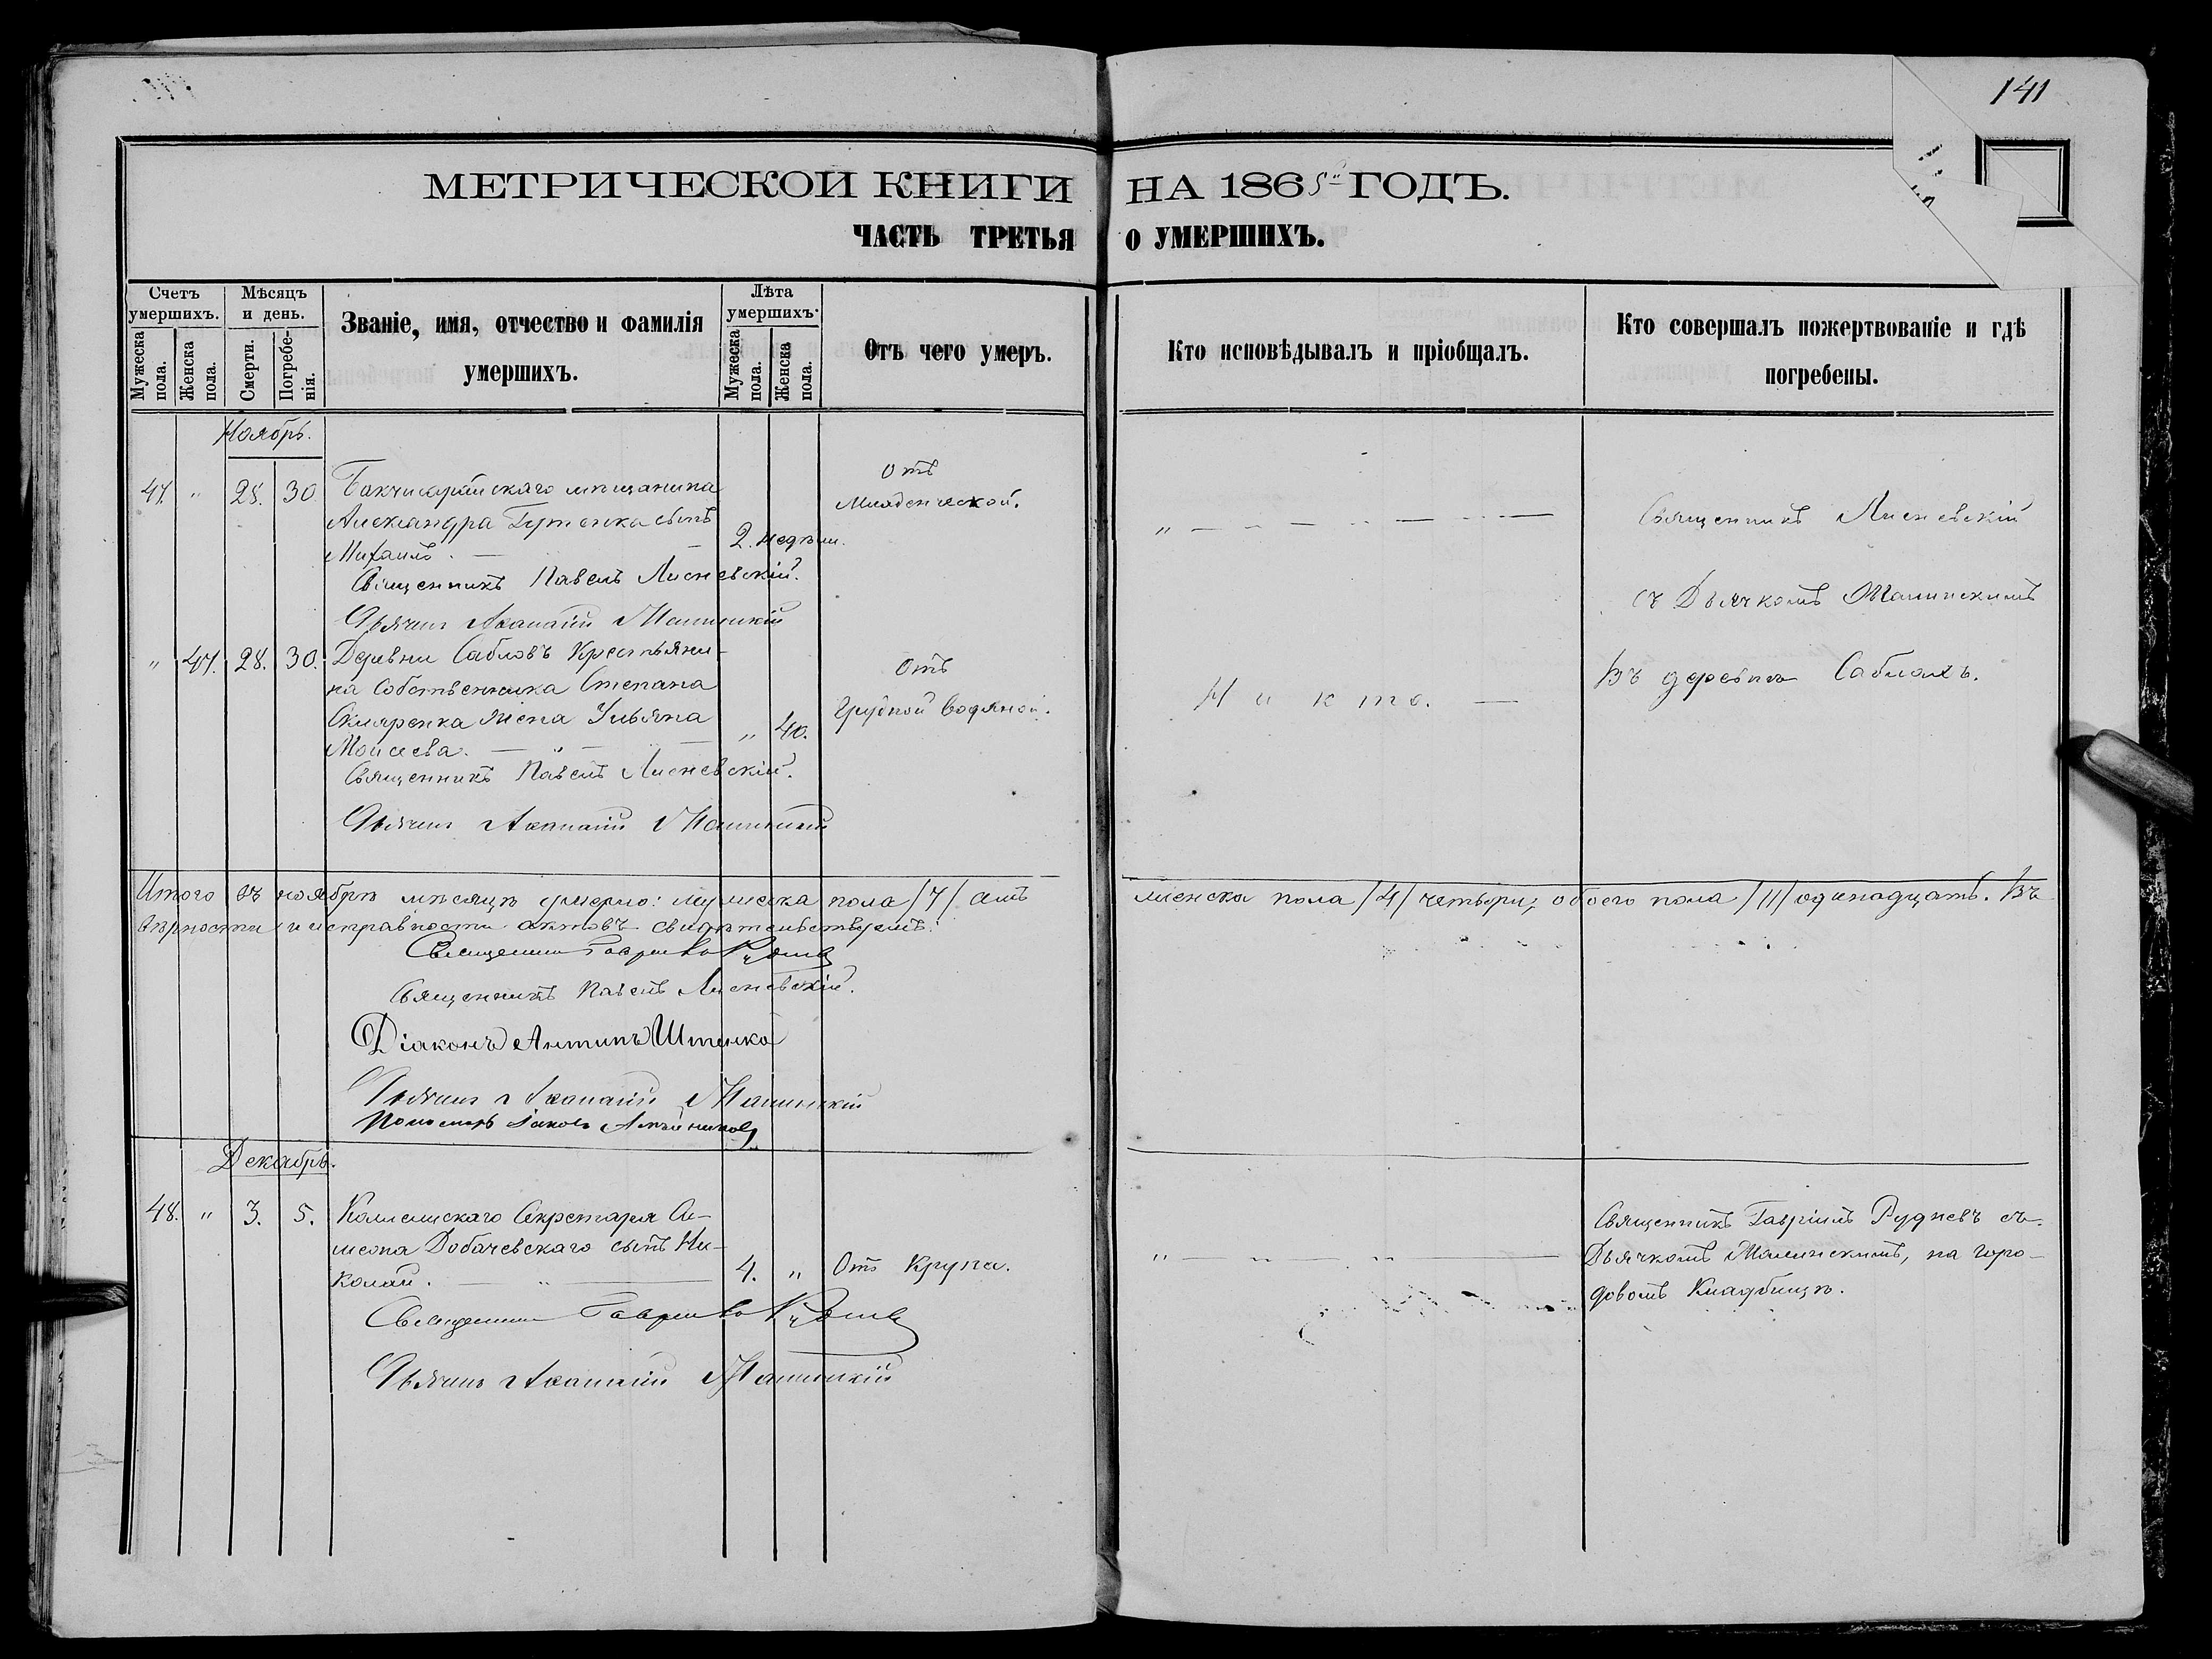 141
МЕТРИЧЕСКОЙ КНИГИ НА 1865й ГОДЪ.
ЧАСТЬ ТРЕТЬЯ О УМЕРШИХЪ.
Счетъ умершихъ.
Мужеска пола.
Женска пола.
Мѣсяцъ и день.
Смерти.
Погребенія.
Званіе, имя, отчество и фамилія
умершихъ.
Лѣта умершихъ.
Мужеска пола.
Женска пола.
Отъ чего умеръ.
Кто исповѣдывалъ и пріобщалъ.
Кто совершалъ пожертвованіе и гдѣ
погребены.
Ноябрь.
47. " 28. 30 Бакчисарайскаго мѣщанина
Александра сынъ
Михаилъ. — 2. недѣли.
Отъ
Младенческой.
Священникъ Лисневскій
Священникъ Павелъ Лисневскій.
съ Дьячкомъ
Дьячекъ
" 47. 28. 30. Деревни Сабловъ Крестьяни-
на Собственника Степана
Скляренка жена Ульяна
Моисеева. — " 40.
Отъ
Грудной водяной.
Никто. —
Въ деревнѣ Саблахъ.
Священникъ Павелъ Лисневскій.
Дьячекъ
Итого въ ноябрѣ мѣсяцѣ умерло: мужеска пола /7/ семь женска пола /4/ четыри, обоего пола /11/ одинадцать. Въ
вѣрности и исправности актовъ свидѣтельствуемъ:
Священникъ Гавріилъ Рудневъ
Священникъ Павелъ Лисневскій.
Діаконъ Антипъ Штенко
Дьячекъ
Пономарь Іаковъ
Декабрь.
48. " 3. 5. Коллежскаго Секретаря Си-
меона Добачевскаго сынъ Ни-
колай. — " — 4. " Отъ Крупа.
Священникъ Гавріилъ Рудневъ съ
Дьячкомъ на горо-
довомъ Кладбищѣ.
Священникъ Гавріилъ Рудневъ
Дьячекъ